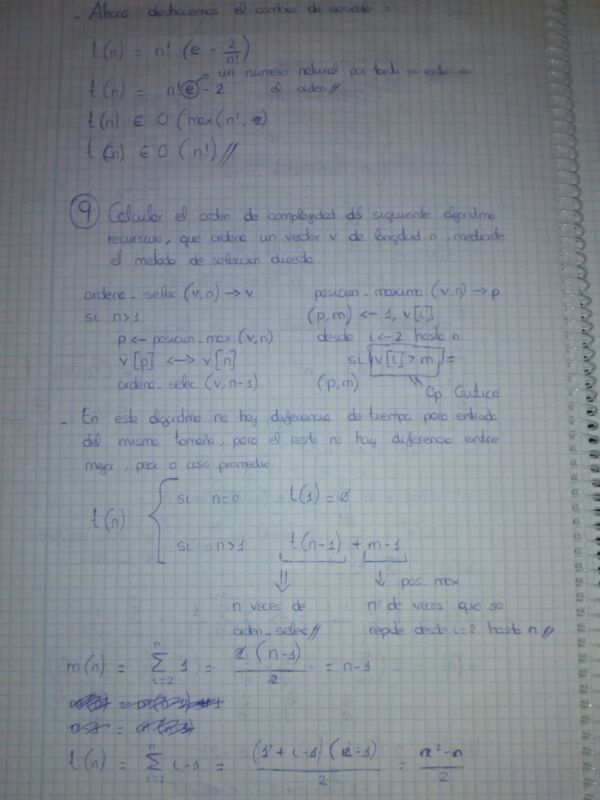 - Ahora deshacemos el cambio de variable :
t(n) = n! (e - 2/n!)
t(n) = n! e - 2 → un numero natural por tanto no entra en el orden //
t(n) ∈ O (max(n!, 2)
t(n) ∈ O (n!) //
9 Calcular el orden de complejidad del siguiente algoritmo
recursivo, que ordena un vector v de longitud n, mediante
el metodo de seleccion directa.
ordena_selec (v,n) → v
si n>1
p ← posicion_max (v,n)
v[p] ↔ v[n]
ordena_selec (v, n-1)
posicion_maximo (v,n) → p
(p,m) ← 1, v[1]
desde i ← 2 hasta n
si v[i] > m =
(p,m)
Op. Critica
- En este algoritmo no hay diferencia de tiempo para entrada
del mismo tamaño, para el resto no hay diferencia entre
mejor, peor o caso promedio
t(n) {
si n=0 t(1) = 0
si n>1 t(n-1) + m-1
⇓ ↓ pos_max
n veces de nº de veces que se
orden_selec // repite desde i=2 hasta n //
m(n) = Σ n i=2 1 = 2 (n-1) / 2 = n-1
t(n) = Σ n i=2 i-1 = (1 + i-1) (n-1) / 2 = n² - n / 2